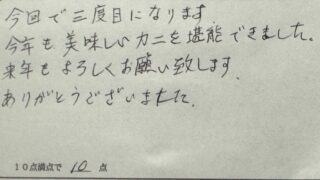 今回で三度目になります
今年も美味しいカニを堪能できました。
来年もよろしくお願い致します.
ありがとうございました.
10点満点で 10 点